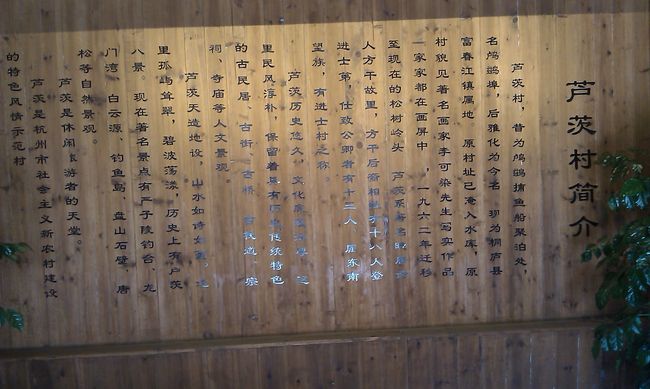 芦茨村简介
芦茨村，昔为鸬鹚捕鱼船聚泊处，
名鸬鹚埠，后雅化为今名 现为桐庐县
富春江镇属地 原村址已淹入水库，原
村貌见著名画家李可染先生写实作品
《家家都在画屏中》，一九六二年迁移
至现在的松树岭头 芦茨系著名 诗
人方干故里，方干后裔相继有十八人登
进士第，仕致公卿者有十二人，属东南
望族，有进士村之称。
芦茨历史悠久，文化 这
里民风淳朴，保留着具有历史传统特色
的古民居、古街、古桥、古 道、宗
祠、寺庙等人文景观
芦茨天造地设，山水如诗如画。这
里孤屿耸翠，碧波荡漾，历史上有芦茨
八景。现在著名景点有严子陵钓台、龙
门湾、白云源、钓鱼岛、盘山石壁、唐
松等自然景观。
芦茨是休闲旅游者的天堂。
芦茨是杭州市社会主义新农村建设
的特色风情示范村